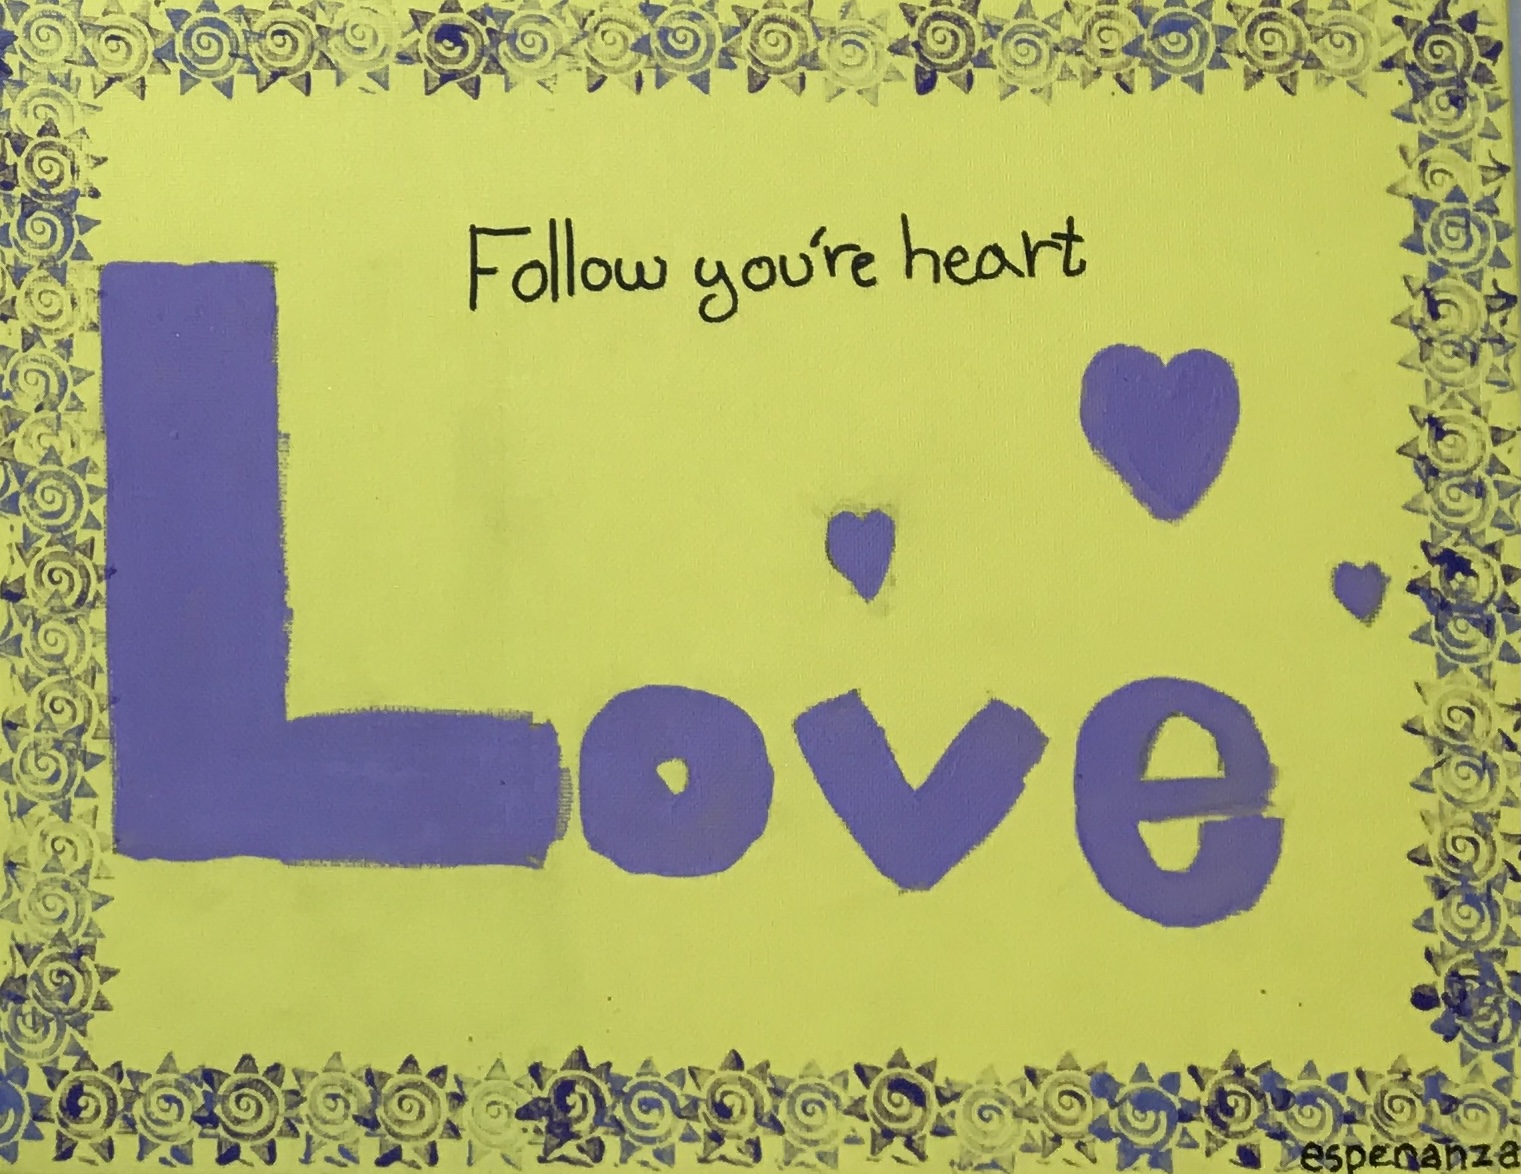 Follow you're heart
Love
espenanza